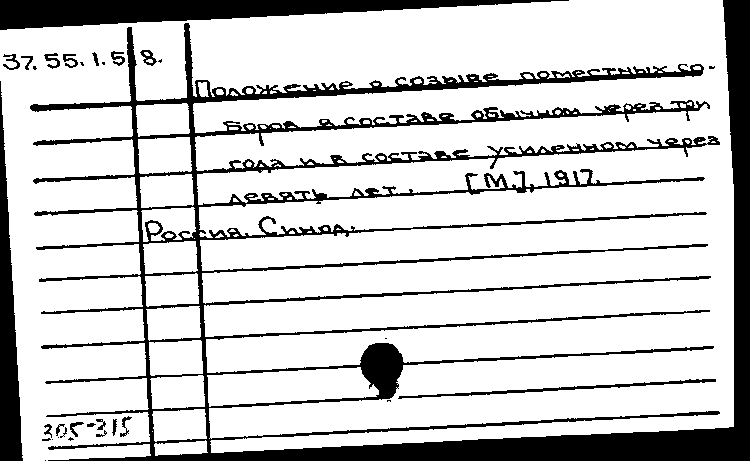 37.55.1.58.
Положение о созыве поместных со-
боров в составе обычном через три
года и в составе усиленном через
девять лет. [М.], 1917.
Россия. Синод.
305-315